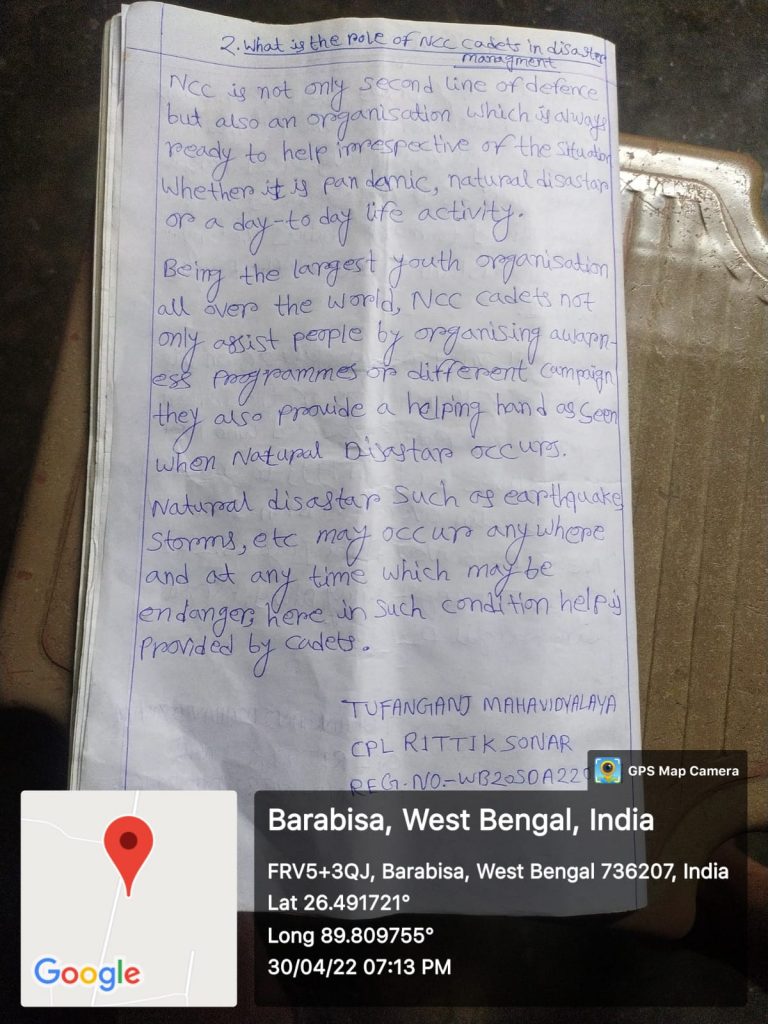 2. What is the role of NCC cadets in disaster
managment
NCC is not only second line of defence
but also an organisation which is always
ready to help irrespective of the situation
whether it is pandemic, natural disastar
or a day-to day life activity.
Being the largest youth organisation
all over the world, NCC cadets not
only assist people by organising awarn-
ess programmes or different campaign
they also provide a helping hand as seen
when Natural Disastar occurs.
Natural disastar such as earthquake,
storms, etc may occur anywhere
and at any time which may be
endanger, here in such condition help is
provided by cadets.
TUFANGANJ MAHAVIDYALAYA
CPL RITTIK SONAR
REG.NO.-WB20SDA220
GPS Map Camera
Barabisa, West Bengal, India
FRV5+3QJ, Barabisa, West Bengal 736207, India
Lat 26.491721°
Long 89.809755°
30/04/22 07:13 PM
Google